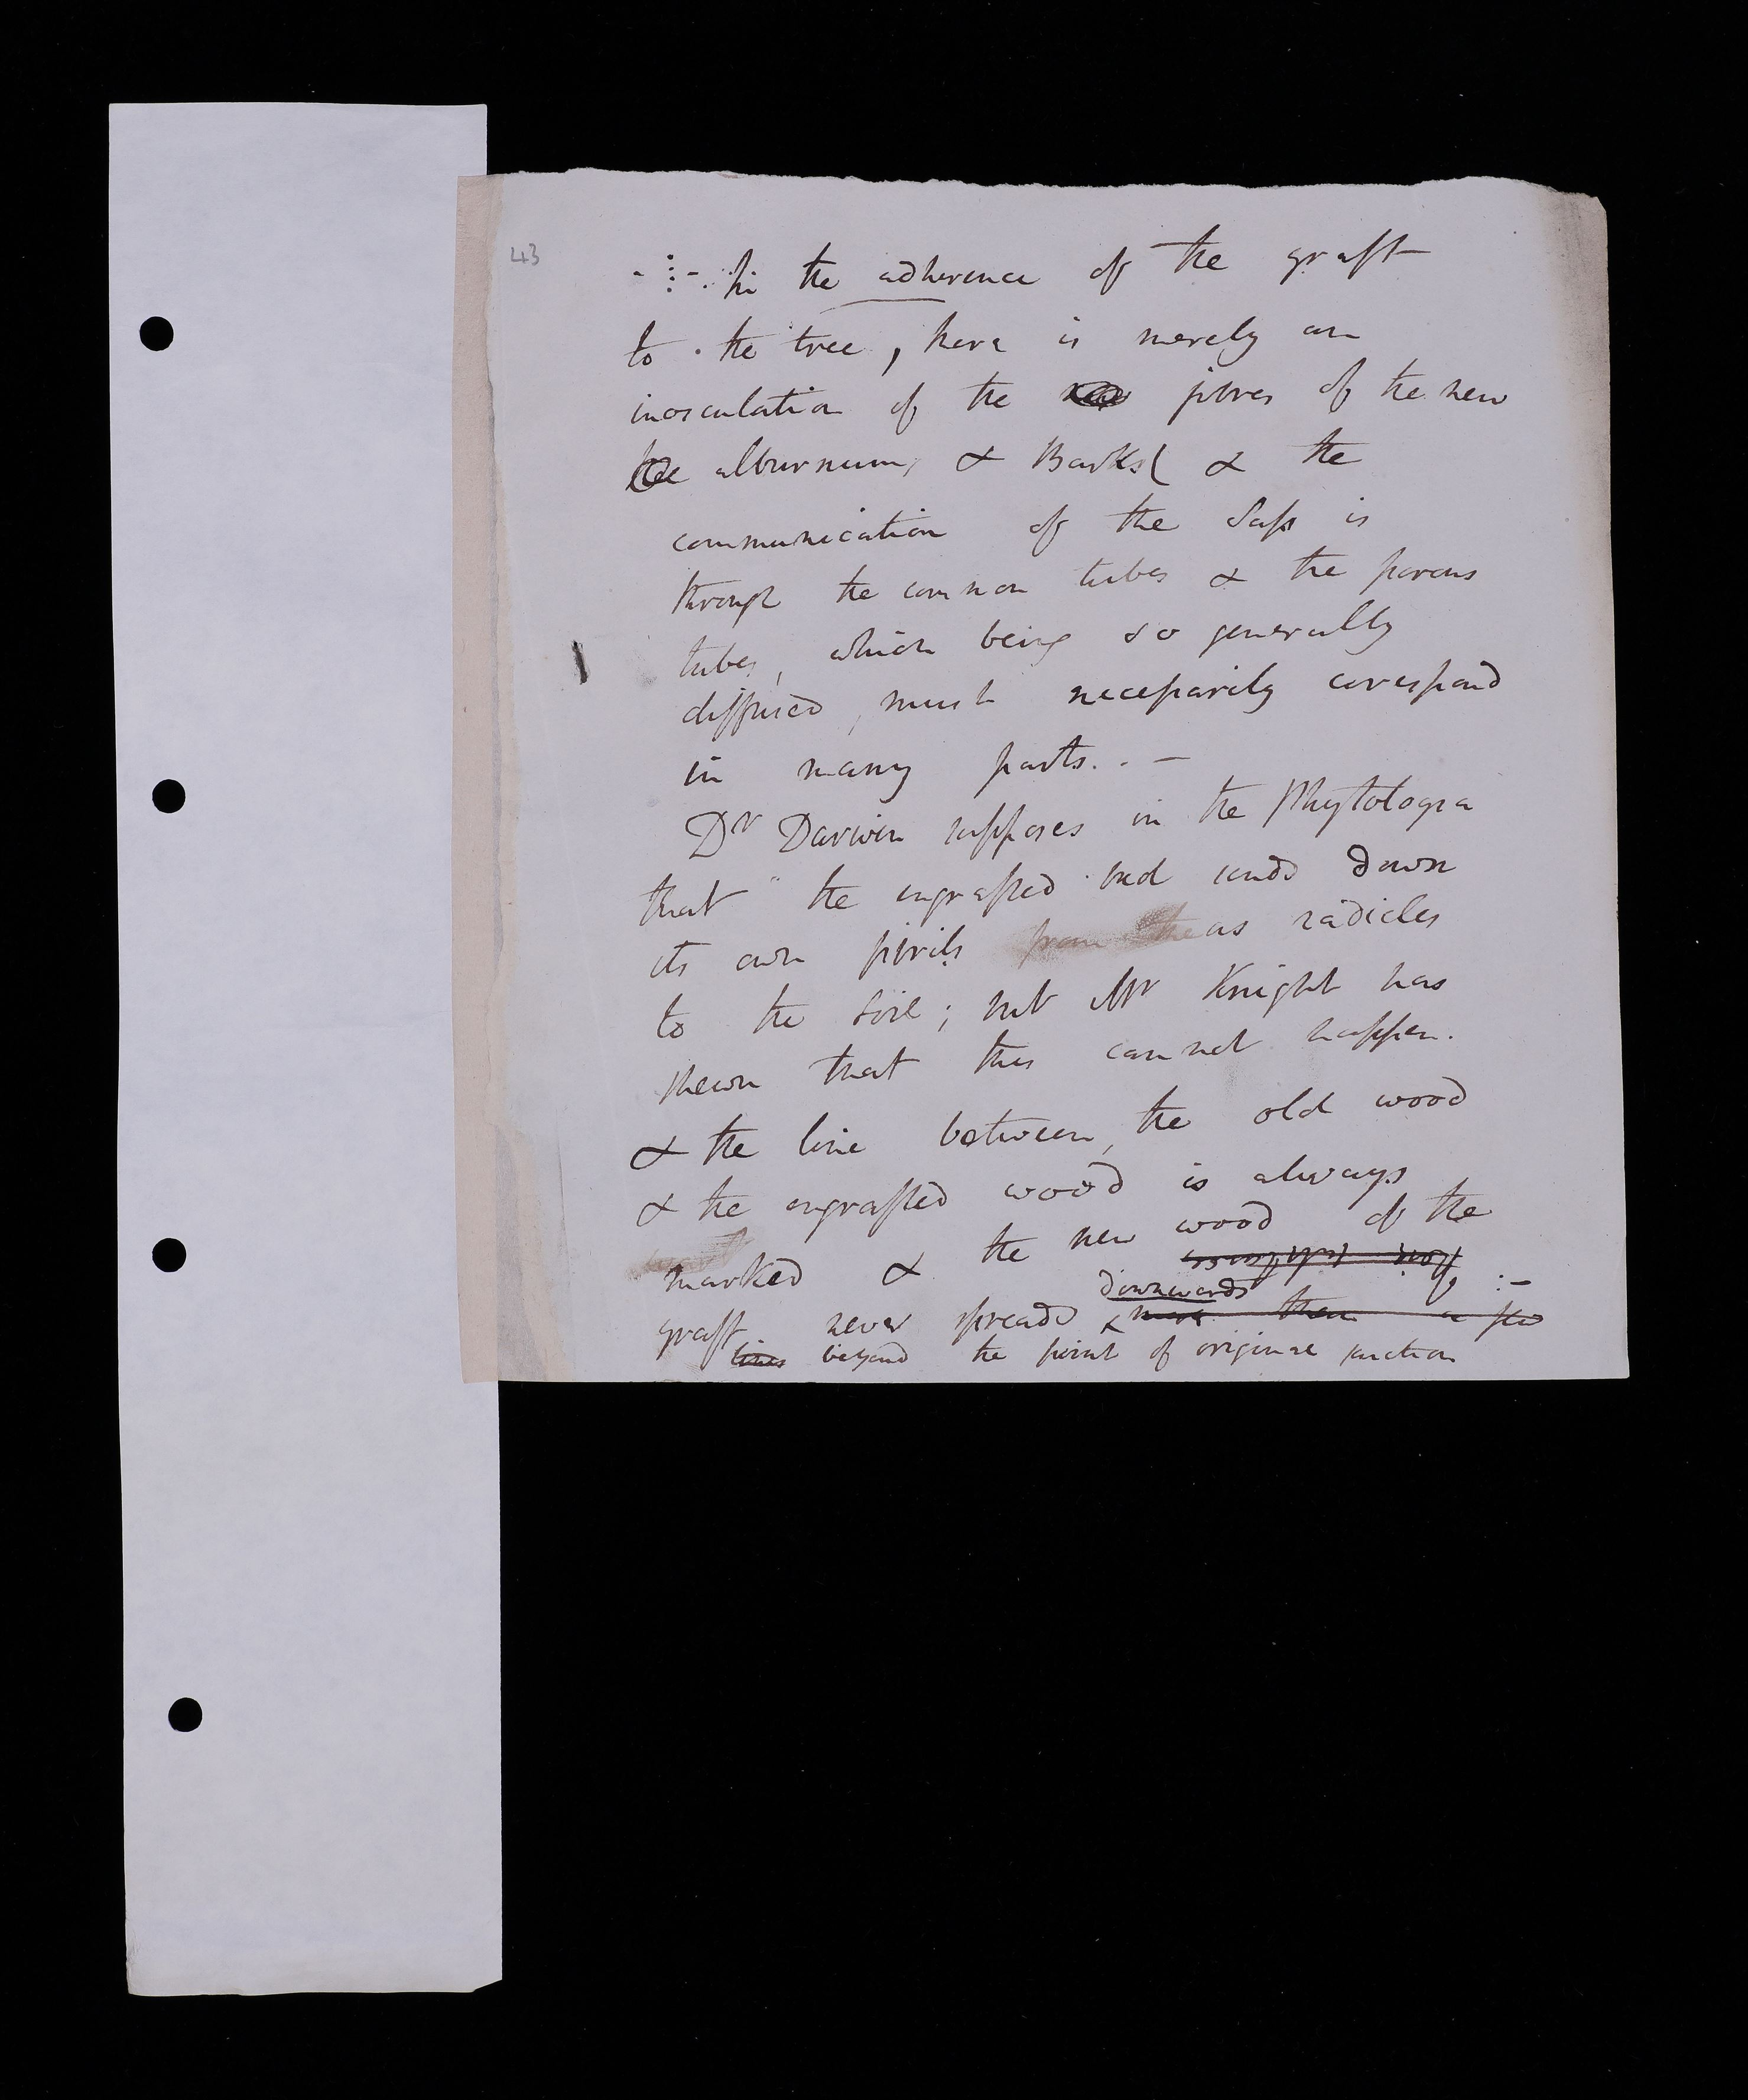 43
-:-. In the adherence of the graft
to the tree, here is merely an
inosculation of the new fibres of the new
the alburnum, & Barks( & the
communication of the Sap is
through the common tubes & the porous
tubes, which being so generally
diffused, must necessarily correspond
in many parts. . —
Dr Darwin supposes in the Phytologia
that the engrafted bud sends down
its own fibrils from the as radicles
to the soil; but Mr Knight has
shewn that this cannot happen.
& the line between, the old wood
& the engrafted wood is always
marked & the new wood of the
downwards :-
graft never spreads & more than a few
lines beyond the point of original junction